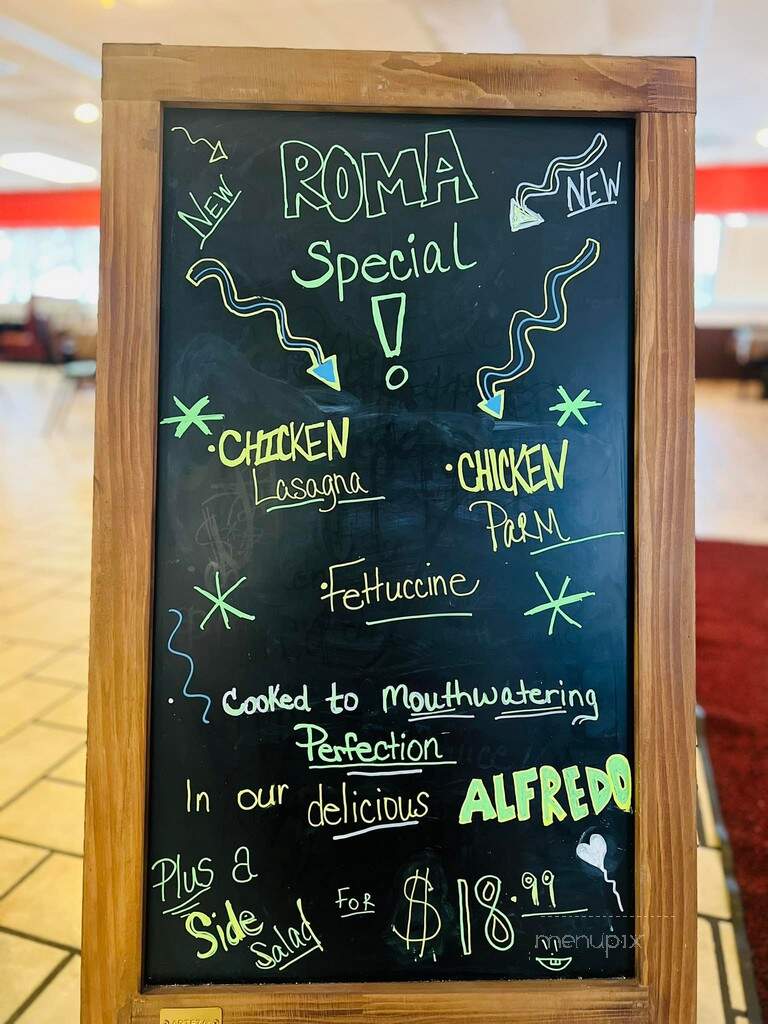 NEW
ROMA
NEW
Special
!
• CHICKEN
Lasagna
• CHICKEN
PARM
• Fettuccine
Cooked to Mouthwatering
Perfection
In our delicious ALFREDO
Plus a
Side
Salad
FOR
$18.99
menupix